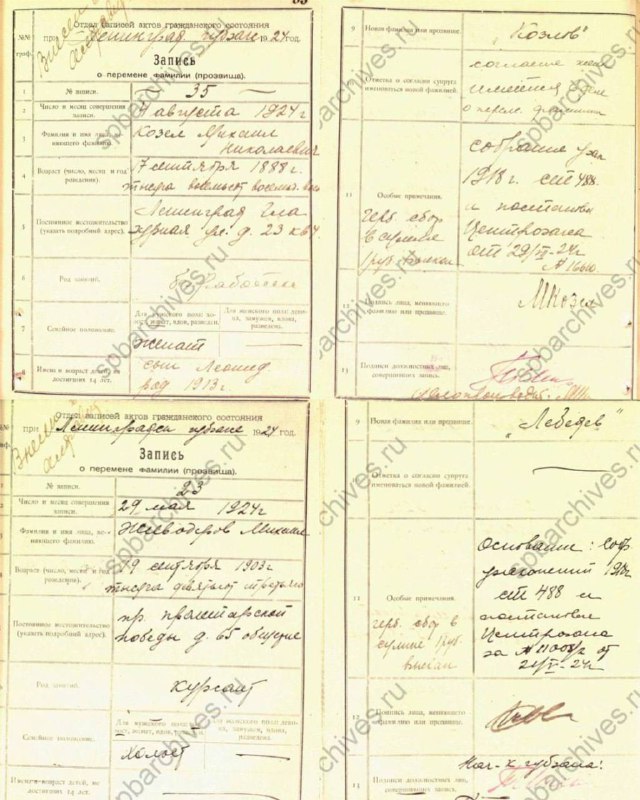 Отдел записей актов гражданского состояния
при Ленинград губзаги 1924 год.
Запись
о перемене фамилии (прозвища).
1 № записи. 35
2 Число и месяц совершения записи. 4 августа 1924 г
3 Фамилия и имя лица, меняющего фамилию. Козел Михаил
Николаевич
4 Возраст (число, месяц и год рождения). 7 сентября 1888 г.
тысяча восемьсот восемьд.
5 Постоянное местожительство (указать подробный адрес). Ленинград
ул. д. 23 кв 4
6 Род занятий. безработн
7 Семейное положение. Для мужского пола: холост, женат, вдов, разведен.
Для женского пола: девица, замужем, вдова, разведена.
женат
8 Имена и возраст детей, не достигших 14 лет. сын Леонид
1913 г
9 Новая фамилия или прозвище. „Козлов"
Отметка о согласии супруга именоваться новой фамилией.
согласие
имеется
о перем. фамилии
11 Особые примечания.
герб. сбор
в сумме
1 руб. взыскан
собрание узак
1918 г. ст 488
и постановл
Центрозагса
№ 1660
12 Подпись лица, меняющего фамилию или прозвище. МКозел
13 Подписи должностных лиц, совершивших запись.
Делопроизводит.
Отдел записей актов гражданского состояния
при 1924 год.
Запись
о перемене фамилии (прозвища).
№ записи. 23
Число и месяц совершения записи. 29 мая 1924 г
Фамилия и имя лица, меняющего фамилию. Живодеров Михаил
Возраст (число, месяц и год рождения). сентября 1903 г
тысяча девятьсот третьего
Постоянное местожительство (указать подробный адрес). пр пролетарской
победы д. 65 общежитие
Род занятий. курсант
Семейное положение. Для мужского пола: холост, женат, вдов, разведен.
Для женского пола: девица, замужем, вдова, разведена.
холост
Имена и возраст детей, не достигших 14 лет.
9 Новая фамилия или прозвище. „Лебедев"
Отметка о согласии супруга именоваться новой фамилией.
11 Особые примечания.
герб. сбор в
сумме 1 руб.
взыскан
Основание: собр
узаконений 1918 г.
ст 488 и
постановл
Центрозагса
за № 11008/2 от
12 Подпись лица, меняющего фамилию или прозвище.
Нач-к губзагса:
13 Подписи должностных лиц, совершивших запись.
spbarchives.ru
spbarchives.ru
spbarchives.ru
spbarchives.ru